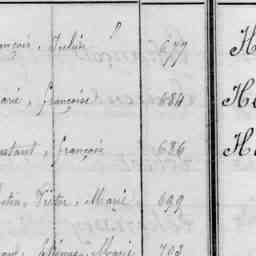 ançois, Julien 677 H
arie, françoise 684 He
nstant, françois 686 H
Victor, Marie 699
Marie 703